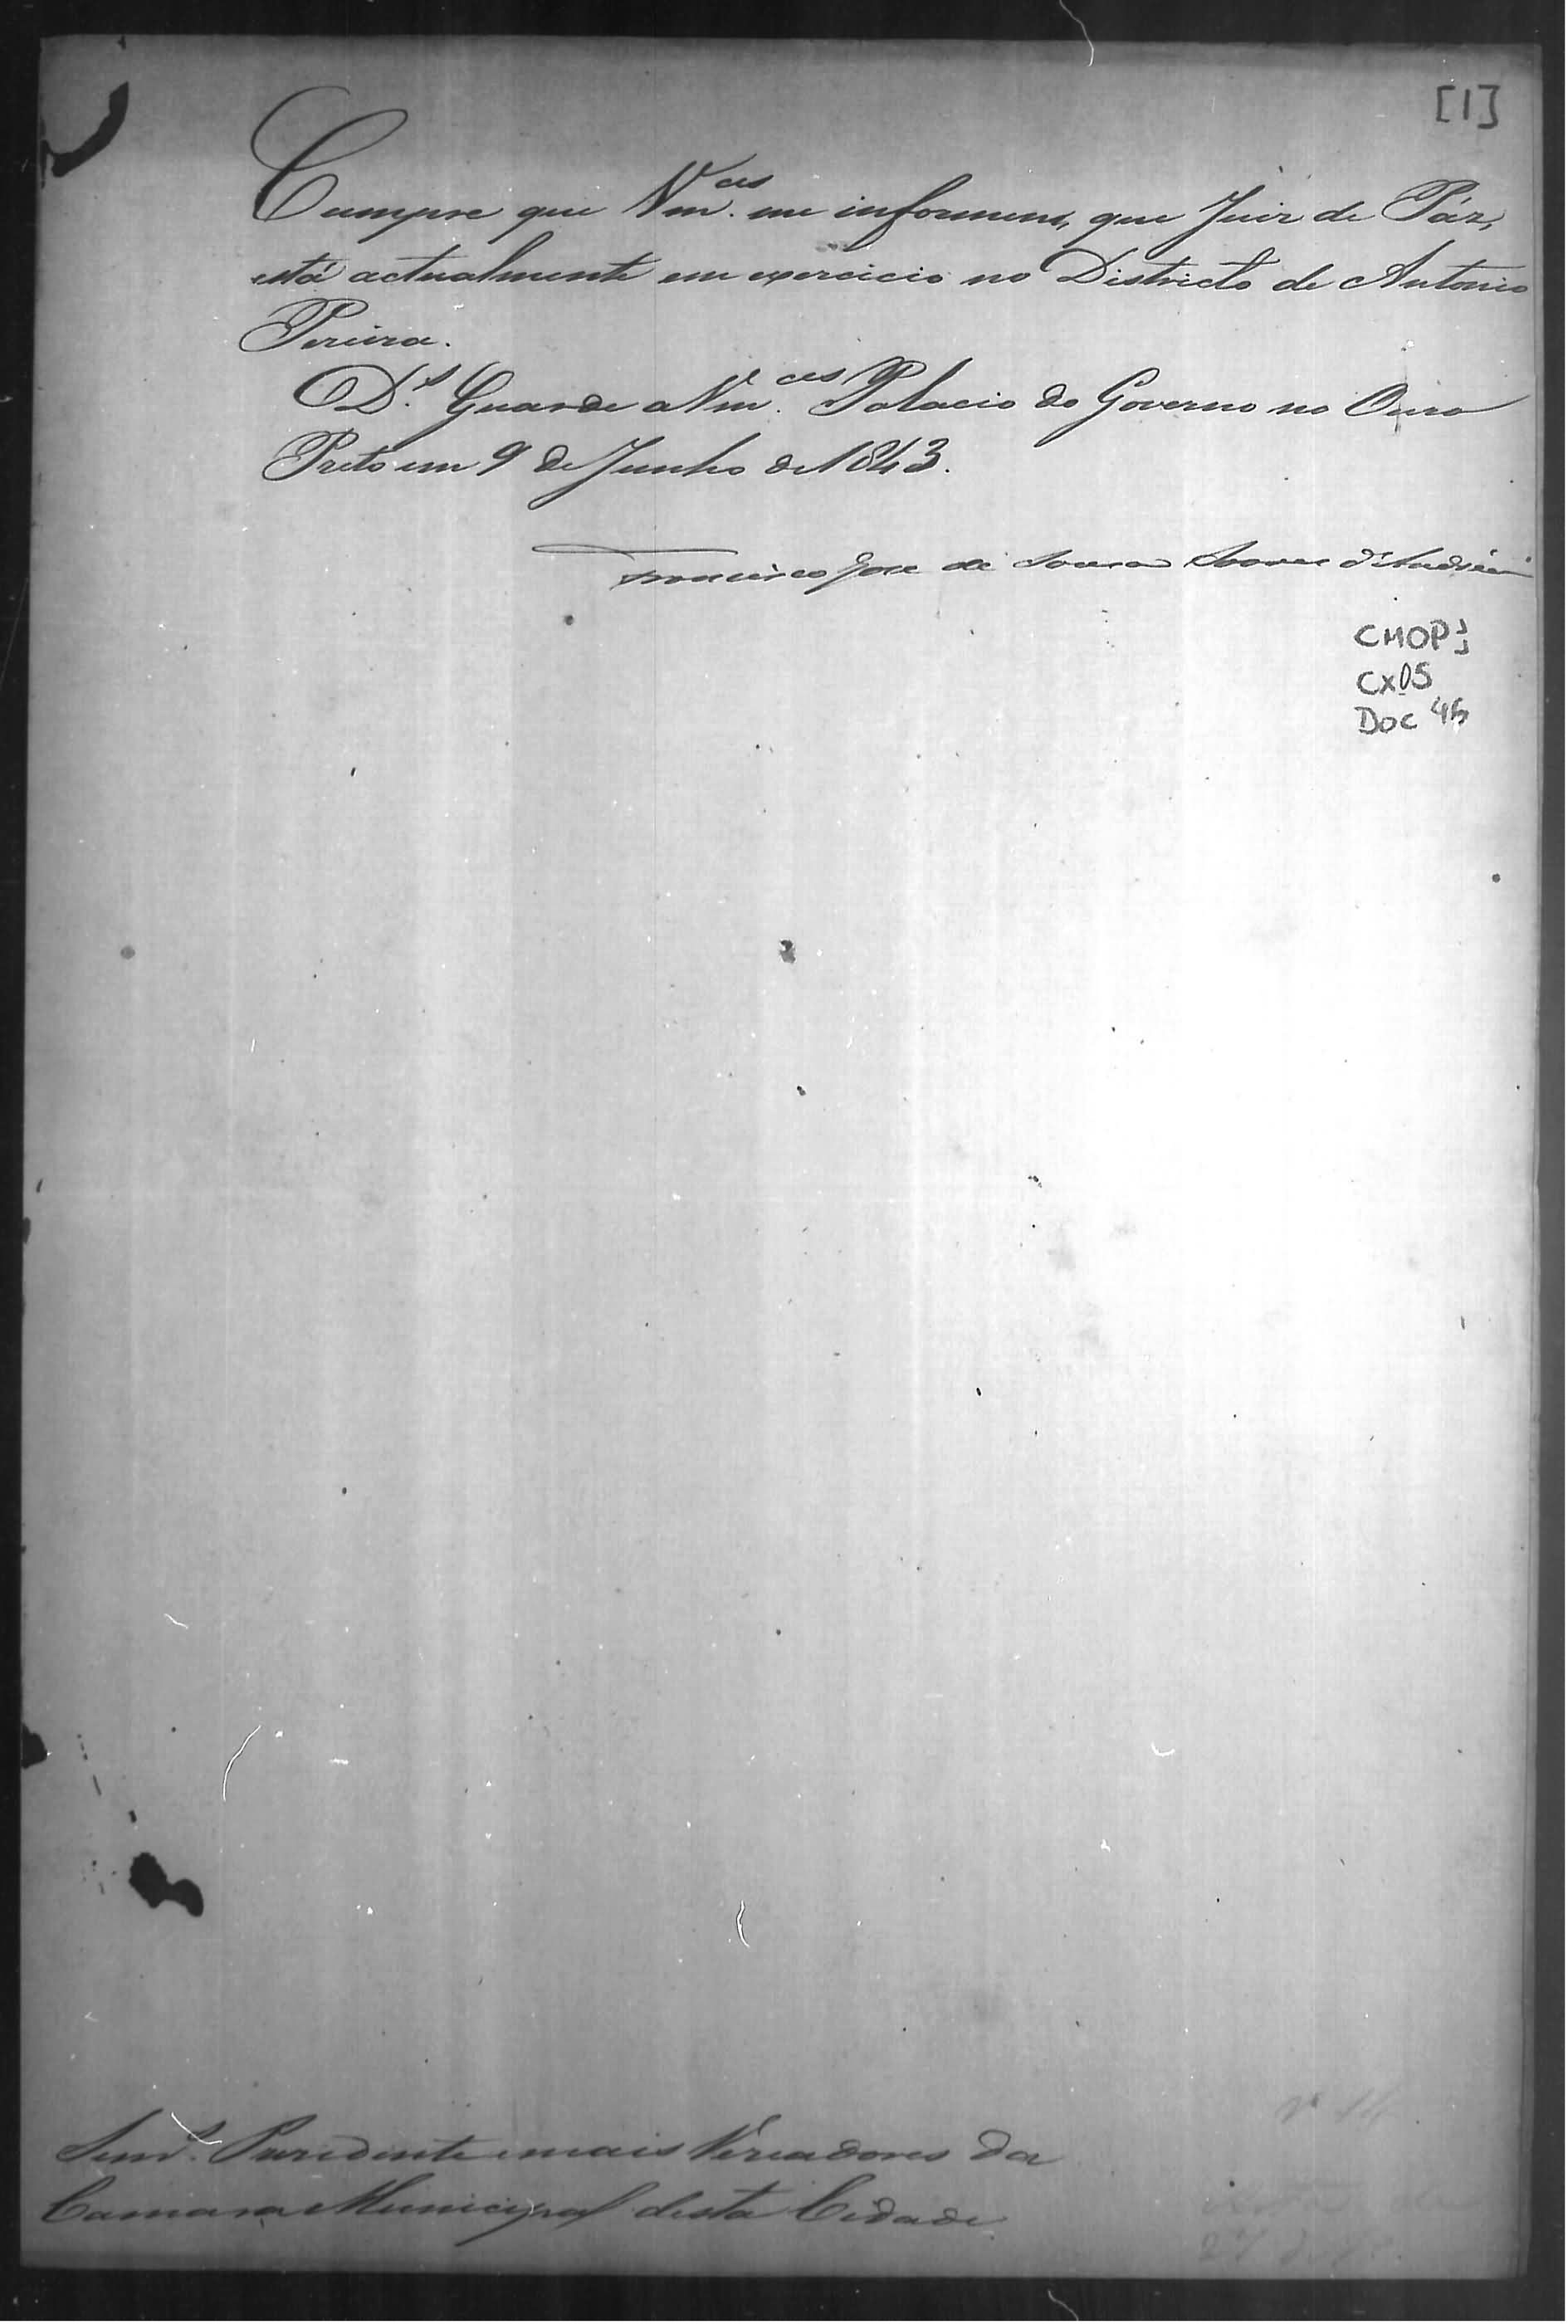 [1]
Cumpre que Vm.ces me informem, que Juiz de Páz,
está actualmente em exercicio no Districto de Antonio
Pereira.
D.s Guarde a Vm.ces Palacio do Governo no Ouro
Preto em 9 de Junho de 1843.
Francisco Jose de Sousa Soares d'Andréa
CMOP
CX05
Doc 45
Senr.s Presidente e mais Vereadores da
Camara Municipal desta Cidade